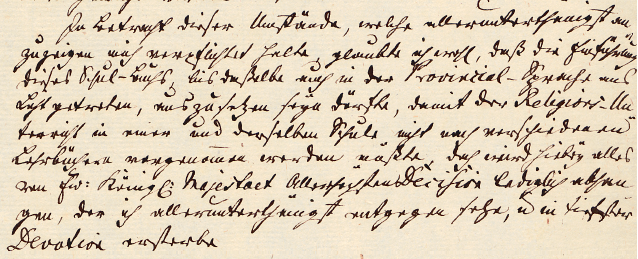 In Betracht dieser Umstände, welche allerunterthänigst an
zuzeigen mich verpflichtet halte, glaubte ich wohl, daß die Einführung
dieses Schul-Buchs, bis dasselbe auch in der Provincial-Sprache ans
Licht getreten, auszusetzen seyn dürfte, damit der Religions-Un
terricht in einer und derselben Schule nicht nach verschiedenen
Lehrbüchern vorgenommen werden müßte, doch wird hiebey alles
von Ew: Königl: Majestaet Allerhöchsten Decision lediglich abhan
gen, der ich allerunterthänigst entgegen sehe, u in tiefster
Devotion ersterbe